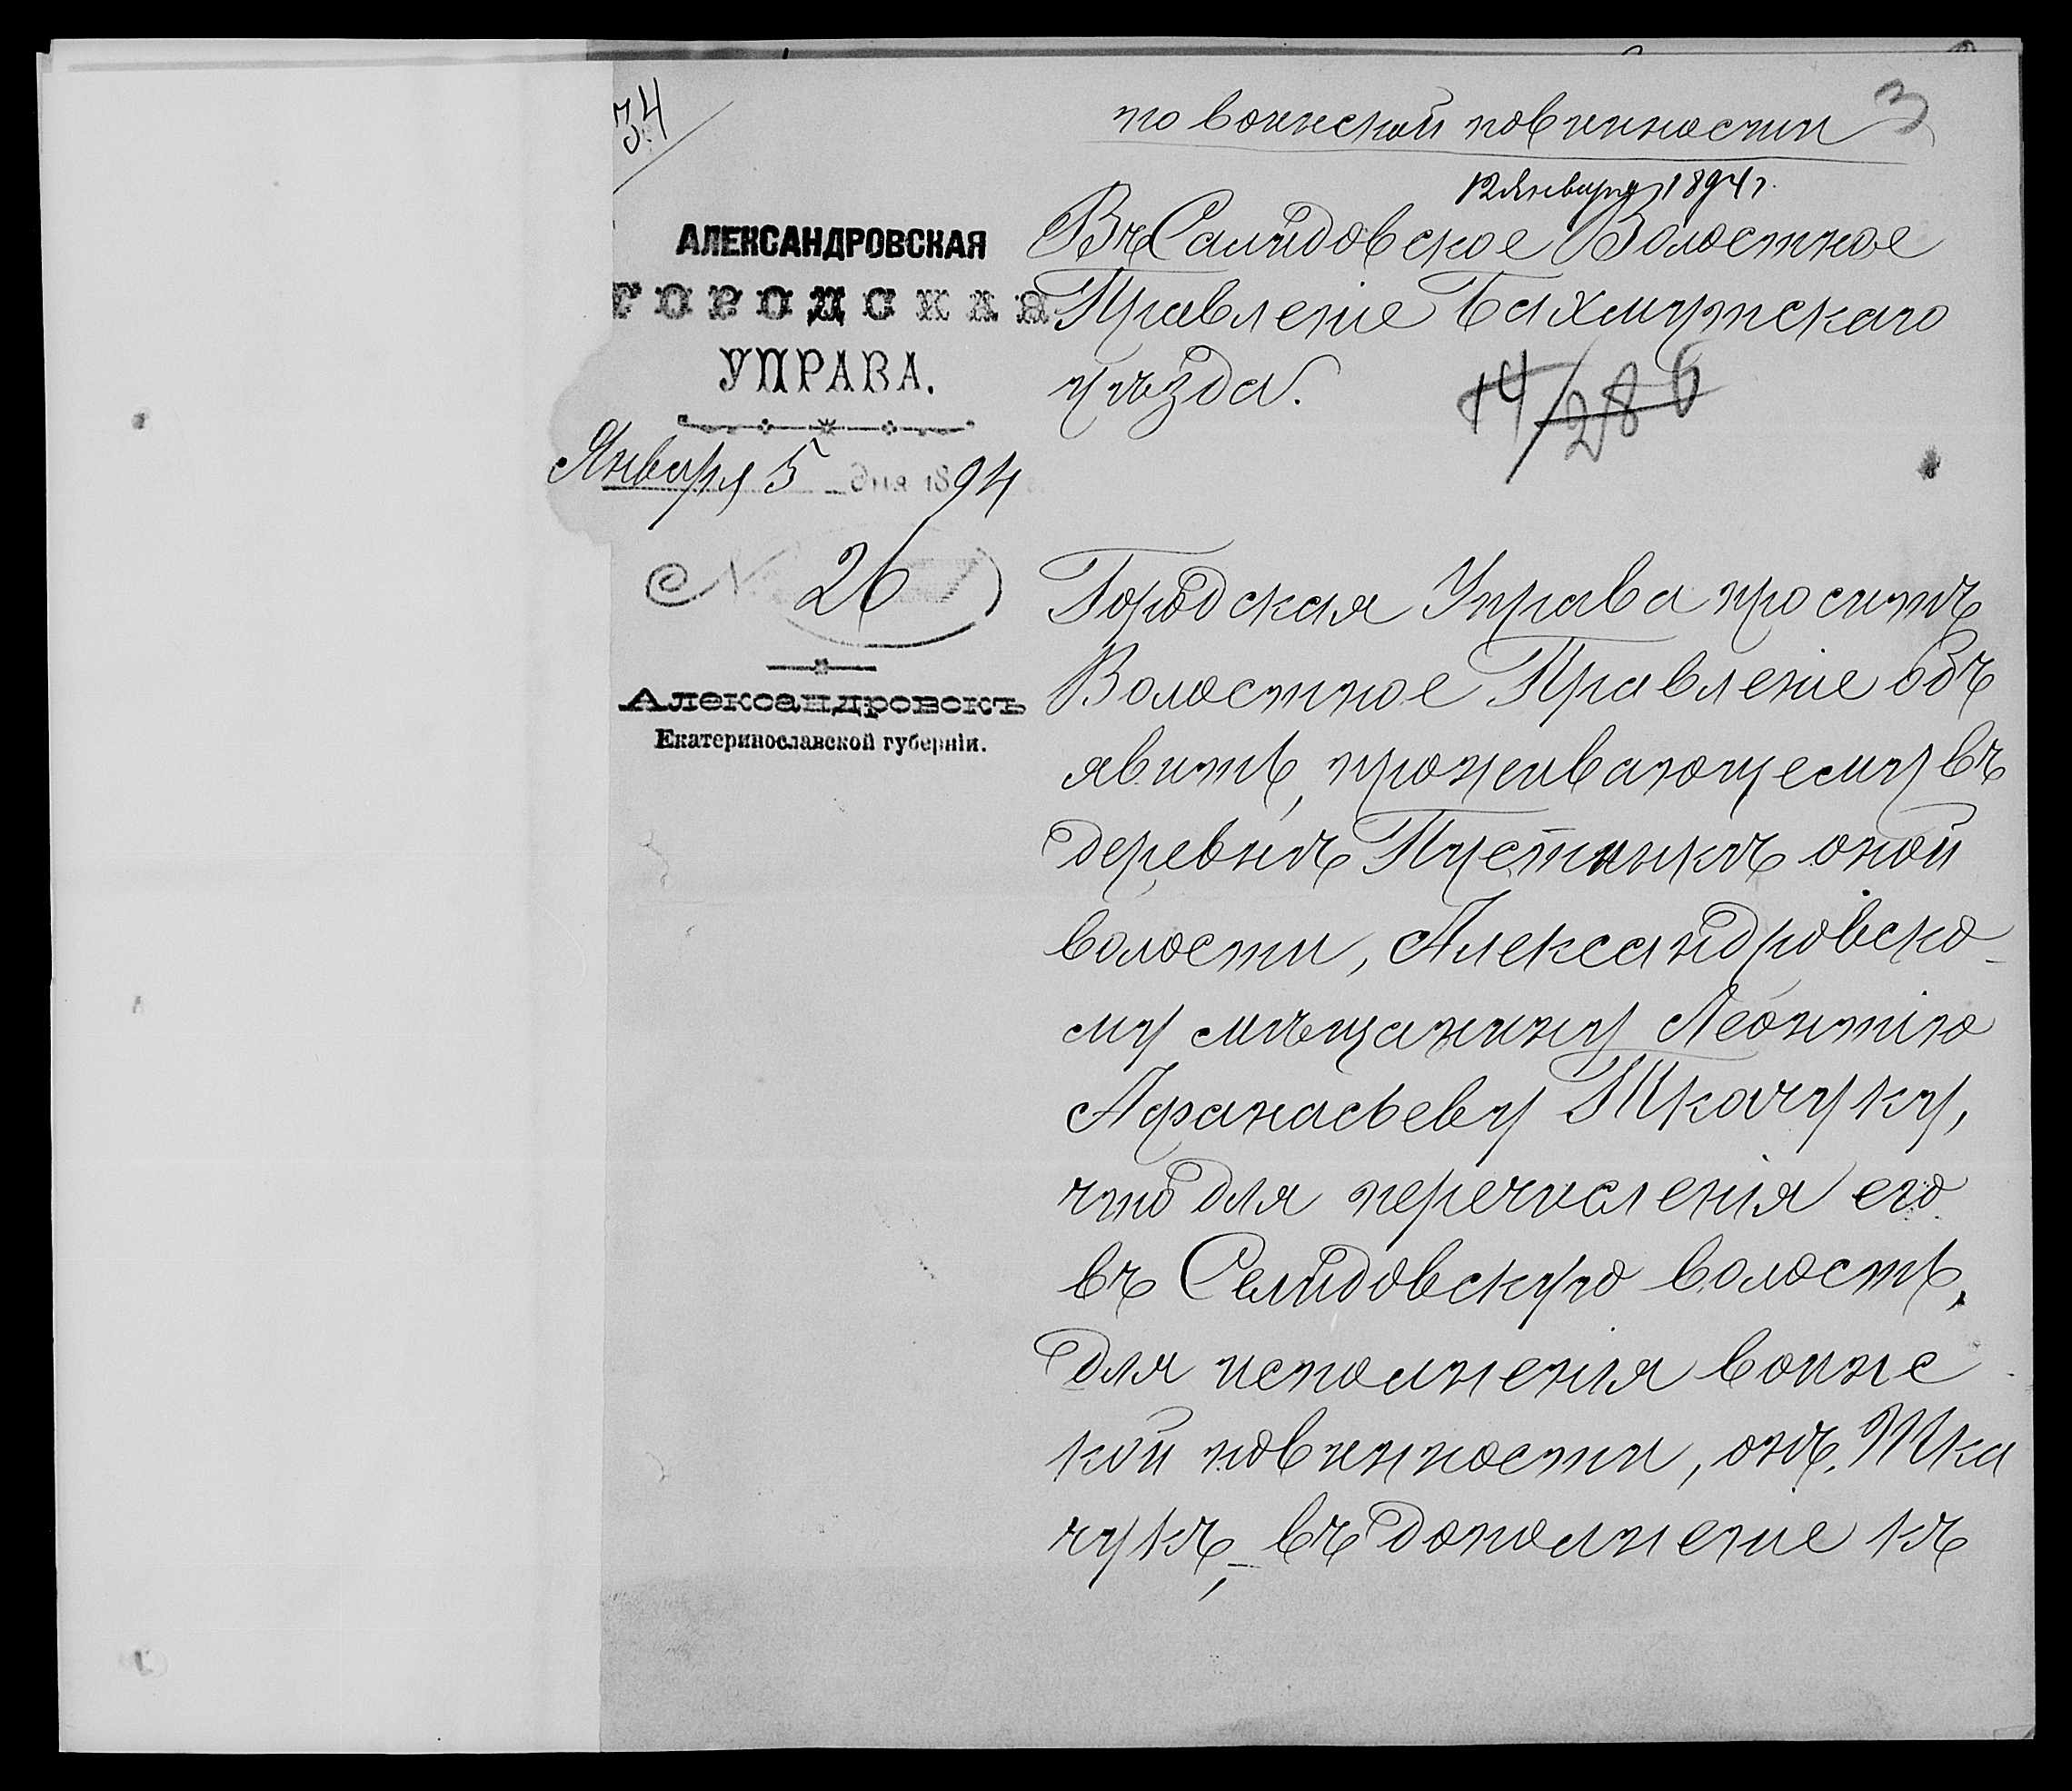 34
по воинской повинности
3
12 Января 1894 г.
АЛЕКСАНДРОВСКАЯ
ГОРОДСКАЯ
УПРАВА.
Января 5 дня 1894
№ 26
Александровскъ
Екатеринославской губерніи.
Въ Салидовское Волостное
Правленіе Бахмутскаго
уѣзда.
14/286
Городская Управа проситъ
Волостное Правленіе объ
явить, проживающему въ
деревнѣ Пустынкѣ оной
волости, Александровско-
му мѣщанину Леонтію
Афанасьеву Ткачуку,
что для перечисленія его
въ Селидовскую волость,
для исполненія воинс
кой повинности, онъ, Тка
чукъ, въ дополненіе къ